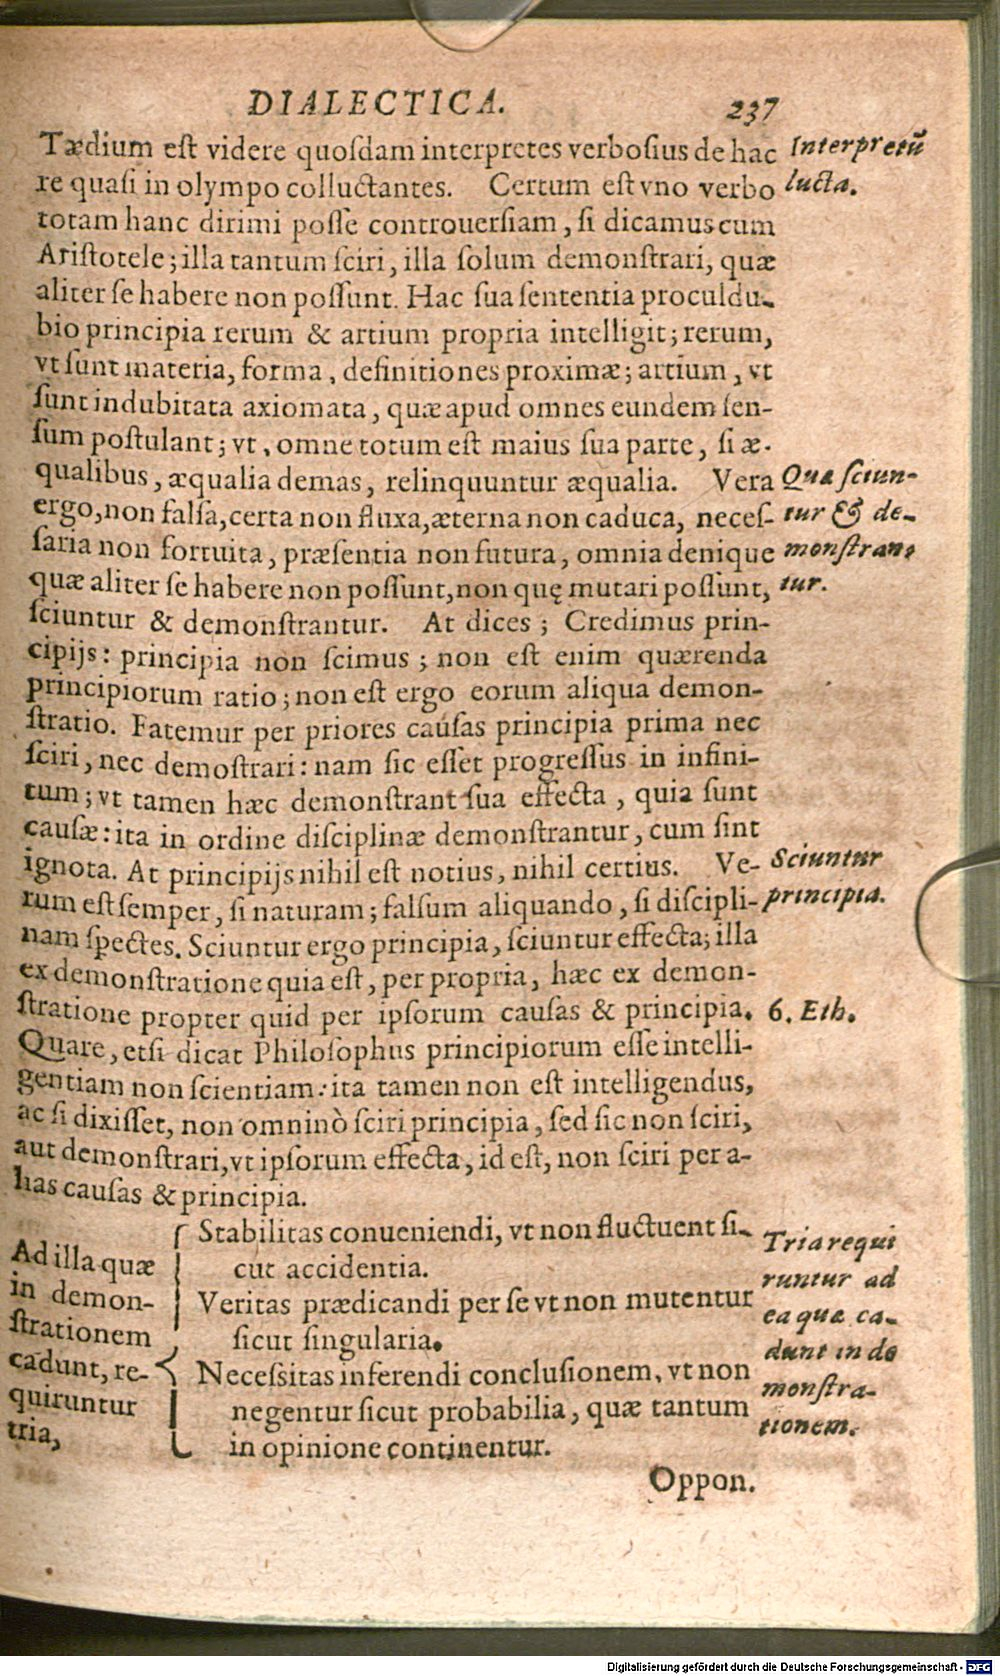 DIALECTICA. 237
Tædium eſt videre quoſdam interpretes verboſius de hac
re quaſi in olympo colluctantes. Certum eſt vno verbo
totam hanc dirimi poſſe controuerſiam, ſi dicamus cum
Ariſtotele; illa tantum ſciri, illa ſolum demonſtrari, quæ
aliter ſe habere non poſſunt. Hac ſua ſententia proculdu-
bio principia rerum & artium propria intelligit; rerum,
vt ſunt materia, forma, definitiones proximæ; artium, vt
ſunt indubitata axiomata, quæ apud omnes eundem ſen-
ſum poſtulant; vt, omne totum eſt maius ſua parte, ſi æ-
qualibus, æqualia demas, relinquuntur æqualia. Vera
ergo, non falſa, certa non fluxa, æterna non caduca, neceſ-
ſaria non fortuita, præſentia non futura, omnia denique
quæ aliter ſe habere non poſſunt, non quę mutari poſſunt,
ſciuntur & demonſtrantur. At dices; Credimus prin-
cipijs: principia non ſcimus; non eſt enim quærenda
principiorum ratio; non eſt ergo eorum aliqua demon-
ſtratio. Fatemur per priores cauſas principia prima nec
ſciri, nec demoſtrari: nam ſic eſſet progreſſus in infini-
tum; vt tamen hæc demonſtrant ſua effecta, quia ſunt
cauſæ: ita in ordine diſciplinæ demonſtrantur, cum ſint
ignota. At principijs nihil eſt notius, nihil certius. Ve-
rum eſt ſemper, ſi naturam; falſum aliquando, ſi diſcipli-
nam ſpectes. Sciuntur ergo principia, ſciuntur effecta; illa
ex demonſtratione quia eſt, per propria, hæc ex demon-
ſtratione propter quid per ipſorum cauſas & principia.
Quare, etſi dicat Philoſophus principiorum eſſe intelli-
gentiam non ſcientiam: ita tamen non eſt intelligendus,
ac ſi dixiſſet, non omninò ſciri principia, ſed ſic non ſciri,
aut demonſtrari, vt ipſorum effecta, id eſt, non ſciri per a-
lias cauſas & principia.
Ad illa quæ
in demon-
ſtrationem
cadunt, re-
quiruntur
tria,
Stabilitas conueniendi, vt non fluctuent ſi-
cut accidentia.
Veritas prædicandi per ſe vt non mutentur
ſicut ſingularia.
Neceſſitas inferendi concluſionem, vt non
negentur ſicut probabilia, quæ tantum
in opinione continentur.
Oppon.
Interpretū
lucta.
Quæ ſciun-
tur & de-
monſtran-
tur.
Sciuntur
principia.
6. Eth.
Tria requi
runtur ad
ea quæ ca-
dunt in de
monſtra-
tionem.
Digitalisierung gefördert durch die Deutsche Forschungsgemeinschaft - DFG